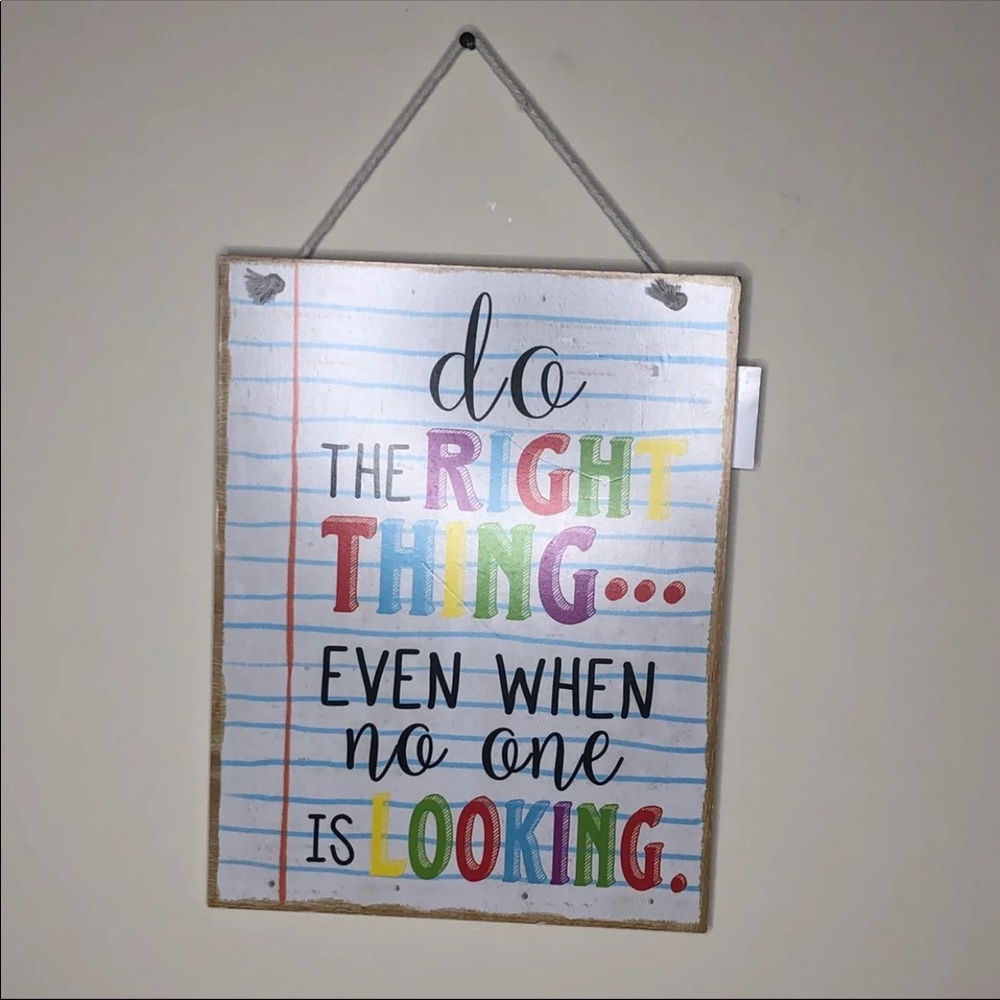 do
THE RIGHT
THING...
EVEN WHEN
no one
IS LOOKING.